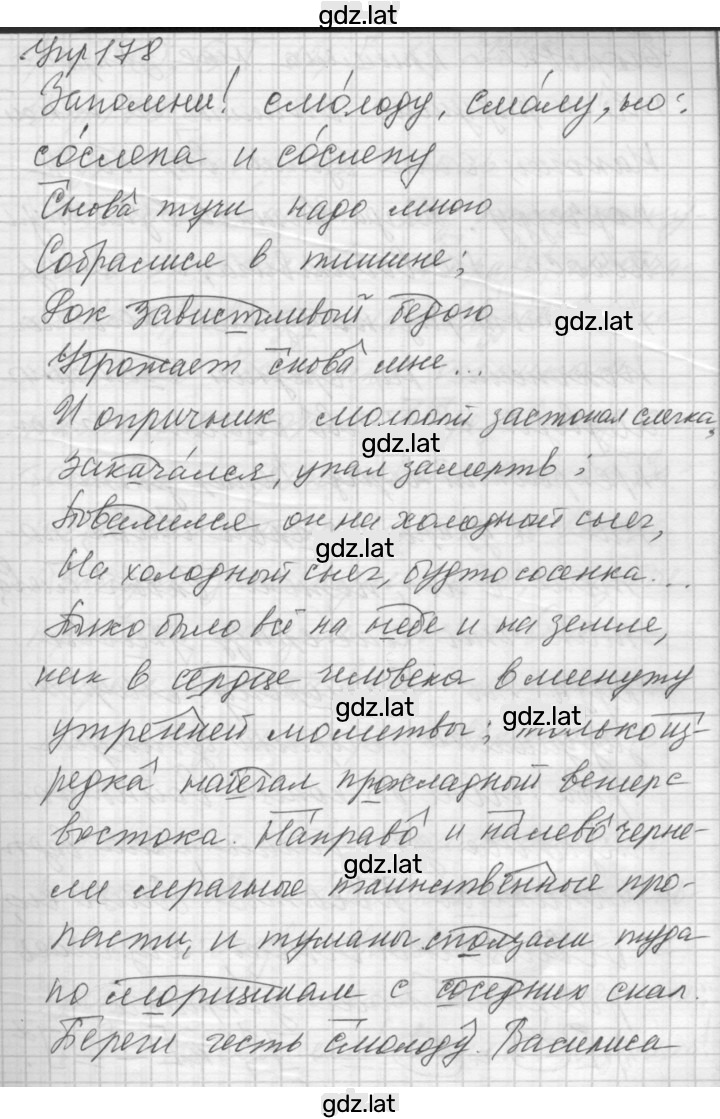 gdz.lat
Упр 178
Запомни! смолоду, смалу, но:
сослепа и сослепу
Снова тучи надо мною
Собралися в тишине;
Рок завистливый бедою
gdz.lat
Угрожает снова мне...
И опричник молодой застонал слегка,
gdz.lat
Закачался, упал замертво;
Повалился он на холодный снег,
gdz.lat
На холодный снег, будто сосенка...
Тихо было всё на небе и на земле,
gdz.lat
как в сердце человека в минуту
gdz.lat
gdz.lat
утренней молитвы; только из-
редка набегал прохладный ветер с
востока. Направо и налево черне-
gdz.lat
ли мрачные таинственные про-
пасти, и туманы сползали туда
по морщинам с соседних скал.
Береги честь смолоду. Василиса
gdz.lat